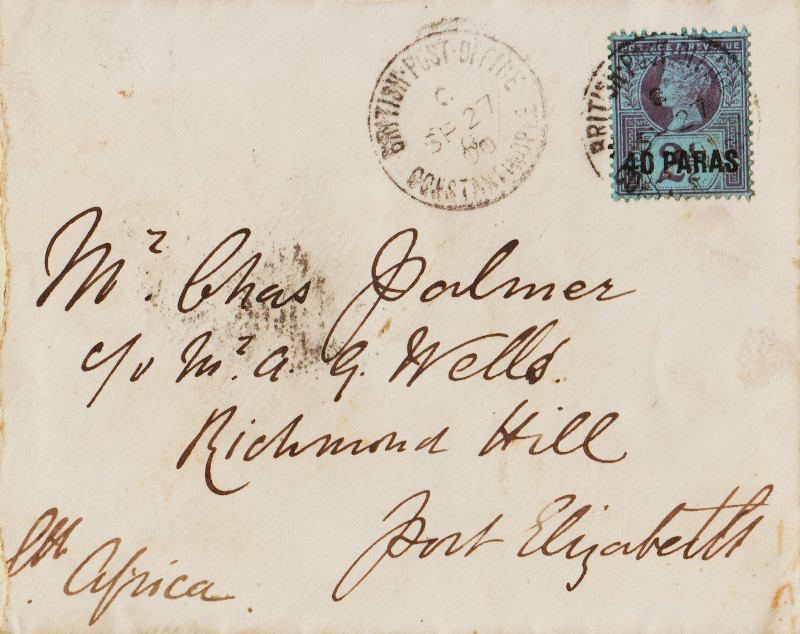 BRITISH·POST·OFFICE
C
SP 27
CONSTANTINOPLE
POSTAGE & REVENUE
BRITISH·POST·
C
27
40 PARAS
2½
Mr. Chas Palmer
c/o Mr. A. G. Wells.
Richmond Hill
Port Elizabeth
Sth Africa.